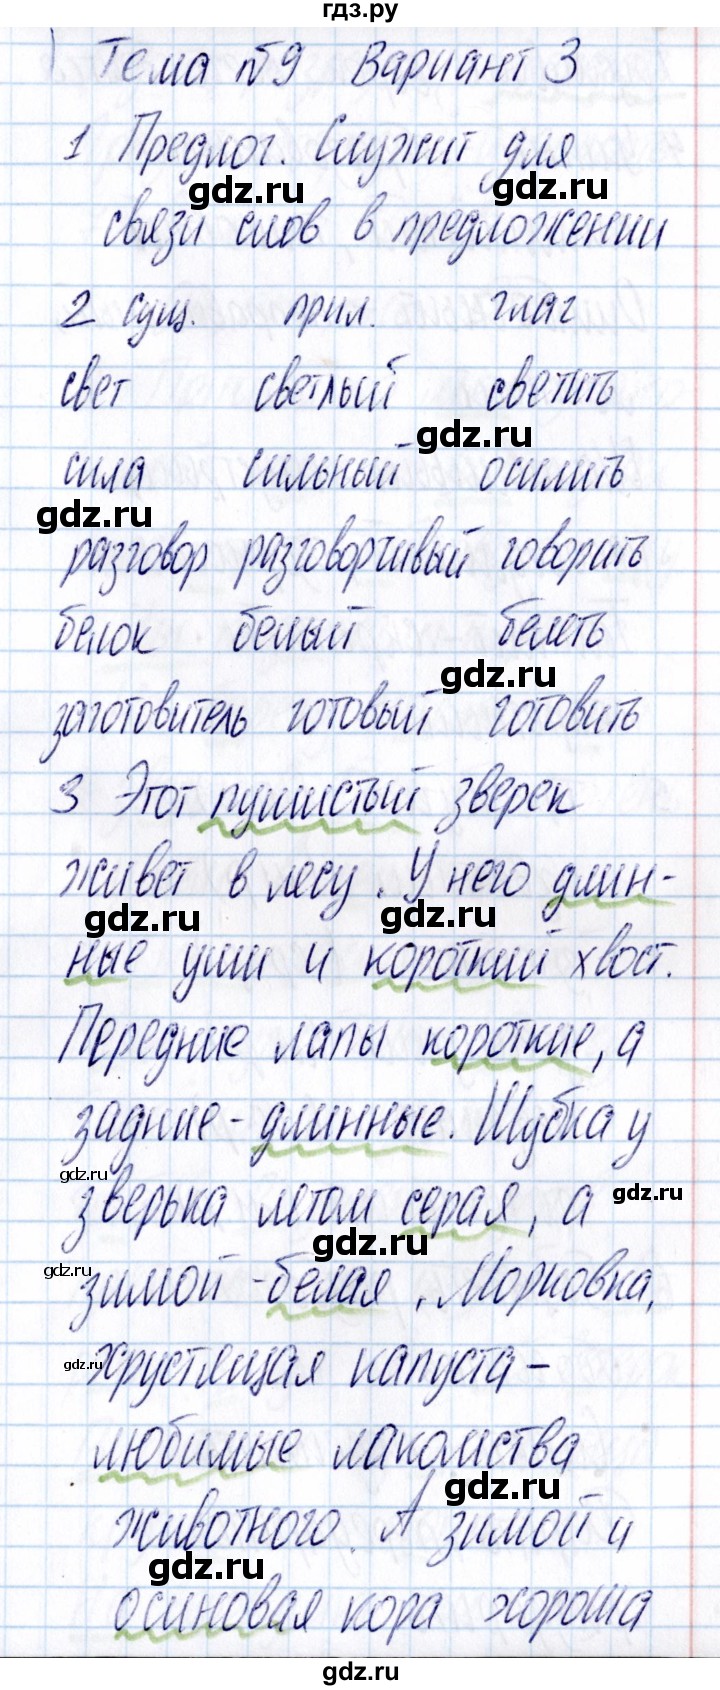 гдз.ру
Тема №9 Вариант 3
1 Предлог. Служит для
gdz.ru gdz.ru
связи слов в предложении
2 сущ. прил. глаг
свет светлый светить
gdz.ru
сила сильный осилить
gdz.ru
разговор разговорчивый говорить
белок белый белеть
gdz.ru
заготовитель готовый готовить
3 Этот пушистый зверек
живет в лесу. У него длин-
gdz.ru gdz.ru
ные уши и короткий хвост.
Передние лапы короткие, а
задние - длинные. Шубка у
gdz.ru gdz.ru
зверька летом серая, а
gdz.ru
gdz.ru
зимой - белая. Морковка,
gdz.ru
хрустящая капуста -
любимые лакомства
gdz.ru
животного. А зимой и
gdz.ru
осиновая кора хороша
gdz.ru